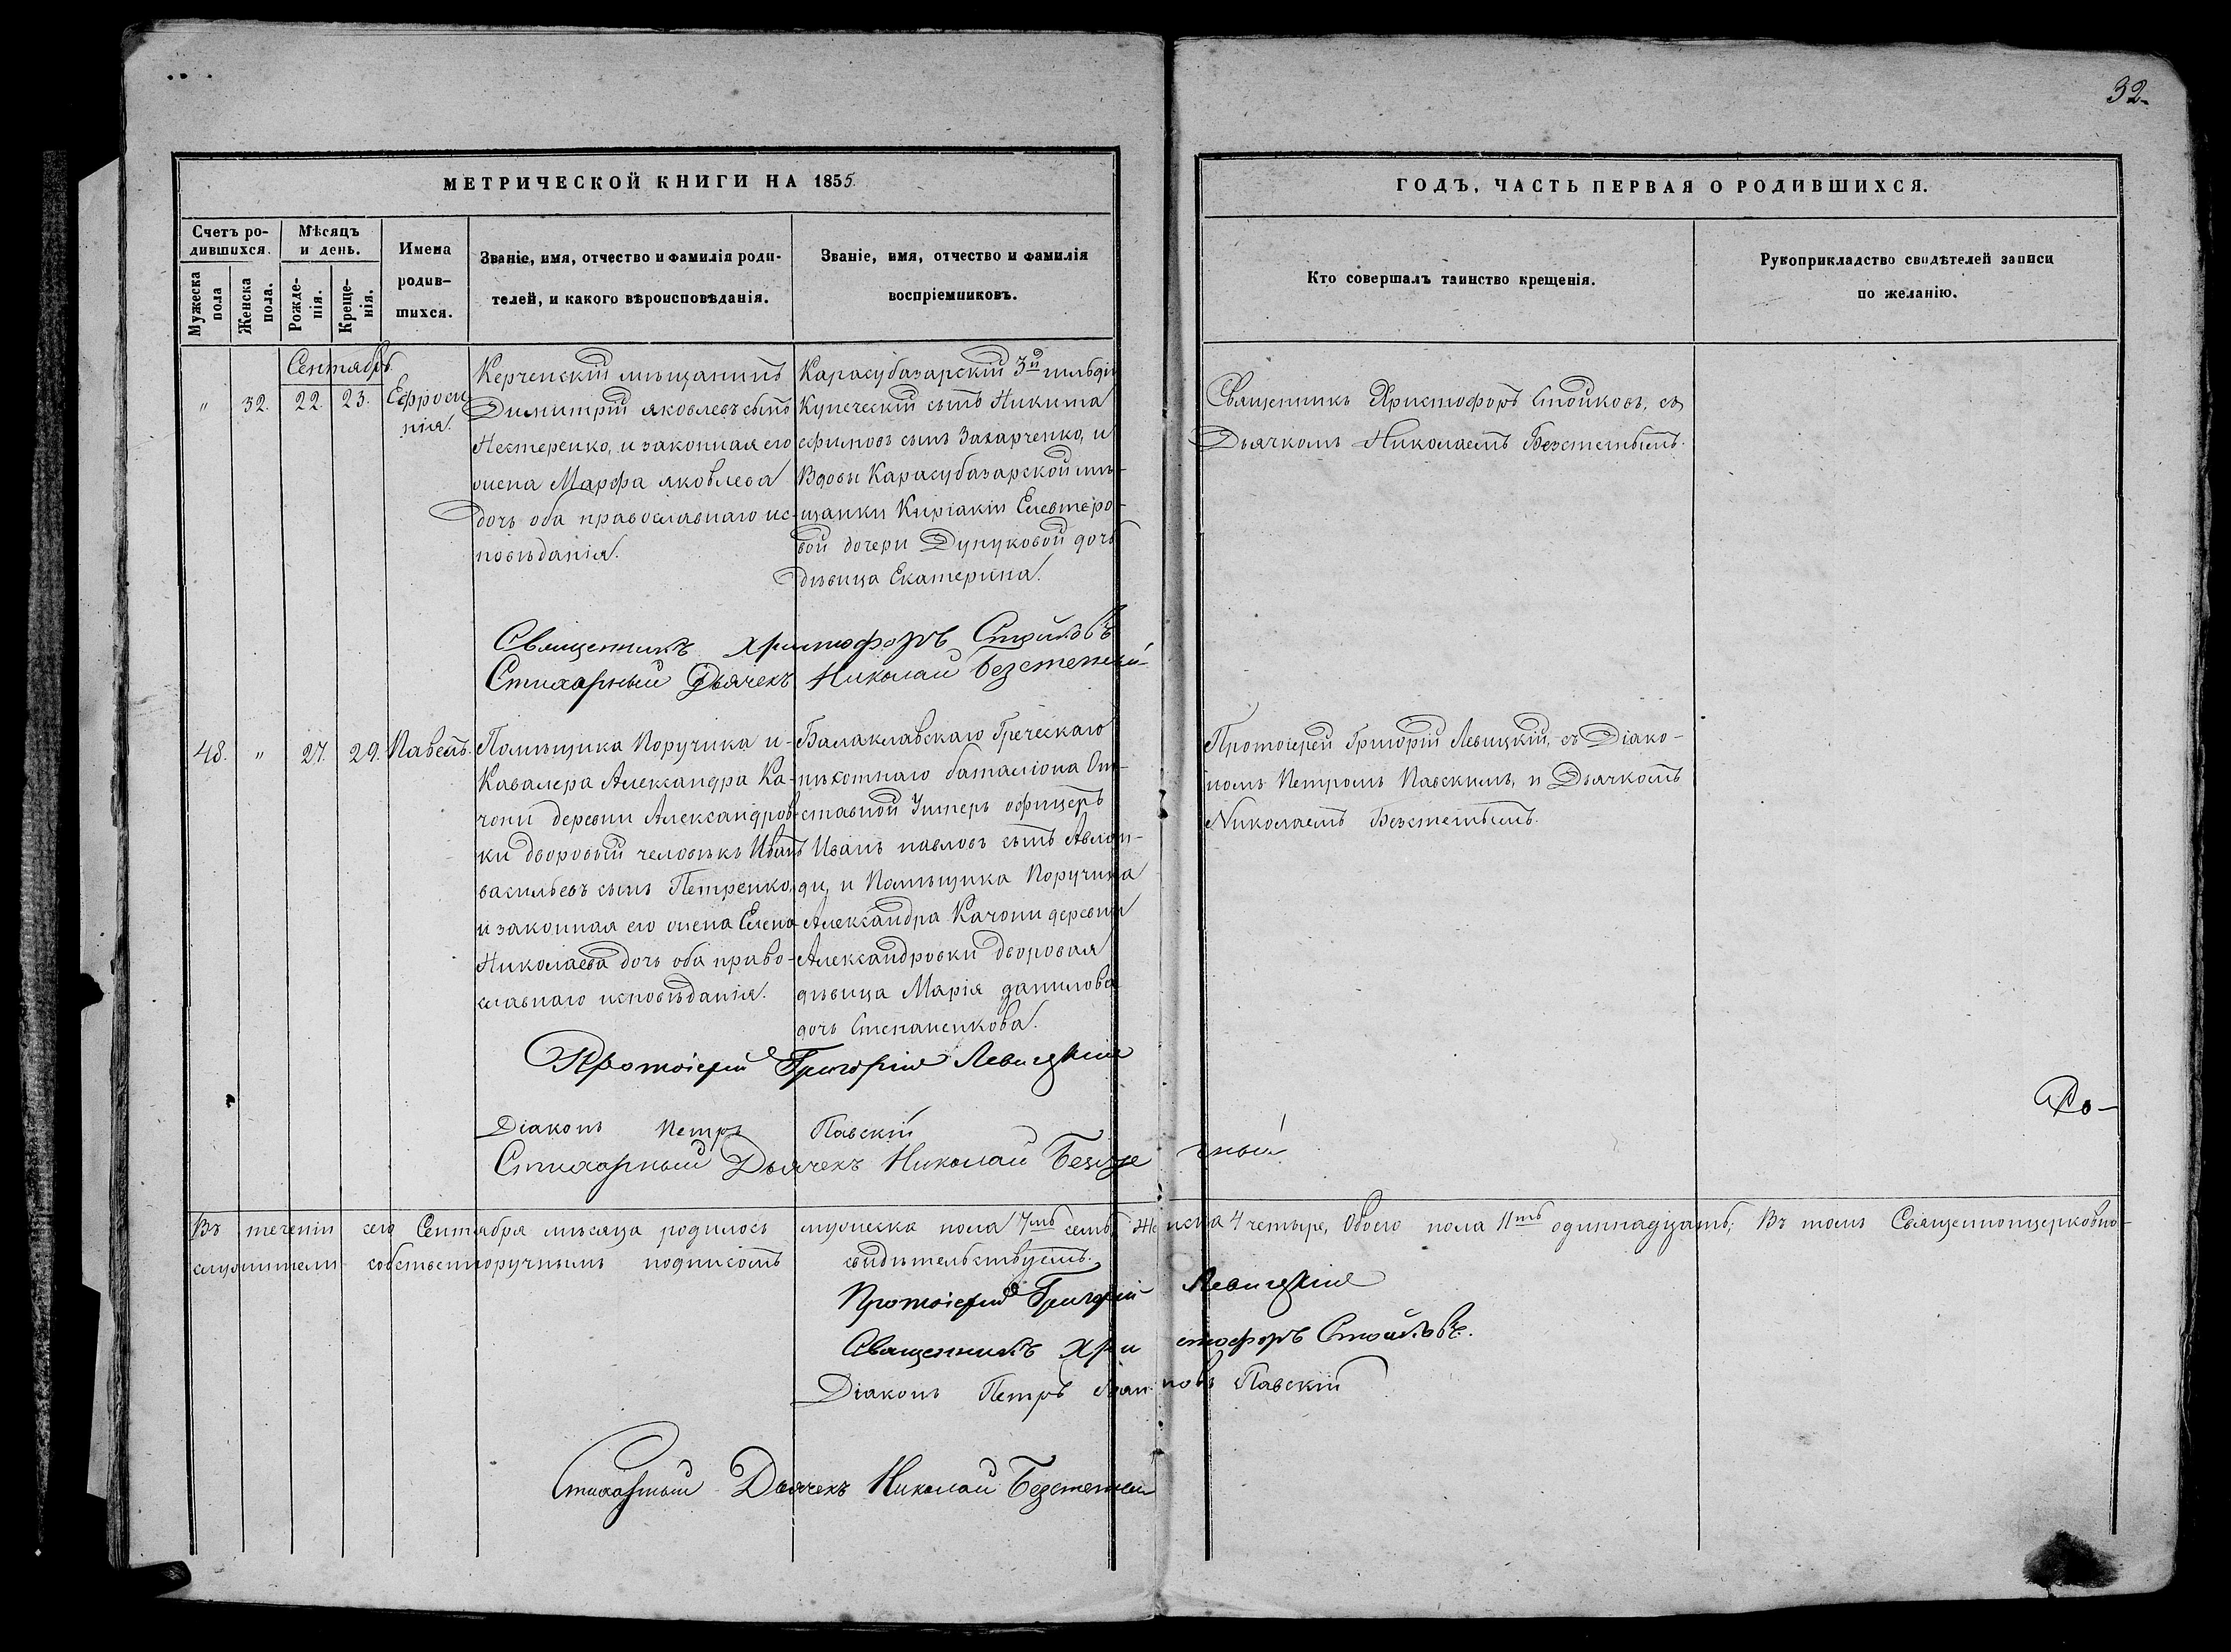 32.
МЕТРИЧЕСКОЙ КНИГИ НА 1855.
ГОДЪ, ЧАСТЬ ПЕРВАЯ О РОДИВШИХСЯ.
Счетъ ро-
дившихся.
Мужеска
пола
Женска
пола.
Мѣсяцъ
и день.
Рожде-
нія.
Креще-
нія.
Имена
родив-
шихся.
Званіе, имя, отчество и фамилія роди-
телей, и какого вѣроисповѣданія.
Званіе, имя, отчество и фамилія
воспріемниковъ.
Кто совершалъ таинство крещенія.
Рукоприкладство свидѣтелей записи
по желанію.
Сентябрь.
" 32. 22. 23. Ефроси
нія.
Керченскій мѣщанинъ
Димитрій яковлевъ сынъ
Нестеренко, и законная его
жена Марфа яковлева
дочь оба православнаго ис-
повѣданія.
Карасубазарскій 3й гильдіи
Купеческій сынъ Никита
ефимовъ сынъ Захарченко, и
Вдовы Карасубазарской мѣ-
щанки Киріакіи Елевтеро-
вой дочери Дунуковой дочь
дѣвица Екатерина.
Священникъ Христофоръ Стойковъ, съ
Дьячкомъ Николаемъ Безстетнымъ.
Священникъ Христофоръ Стойковъ
Стихарный Дьячекъ Николай Безстетный
48. " 27. 29. Павелъ.
Помѣщика Поручика и
Кавалера Александра Ка-
чони деревни Александров-
ки дворовый человѣкъ Иванъ
васильевъ сынъ Петренко,
и законная его жена Елена
Николаева дочь оба право-
славнаго исповѣданія.
Балаклавскаго Греческаго
пѣхотнаго баталіона От-
ставной Унтеръ офицеръ
Иванъ павловъ сынъ Авлон-
ди, и Помѣщика Поручика
Александра Качони деревни
Александровки дворовая
дѣвица Марія данилова
дочь Степаненкова.
Протоіерей Григорій Левицкій, съ Діако-
номъ Петромъ Павскимъ, и Дьячкомъ
Николаемъ Безстетнымъ.
Протоіерей Григорій Левицкій
Діаконъ Петръ Павскій
Стихарный Дьячекъ Николай Безсте тный
Въ теченіи сего Сентября мѣсяца родилось мужеска пола 7мь семь, Женска 4 четыре, Обоего пола 11ть одиннадцать; Въ томъ Священноцерковно-
служители собственноручнымъ подписомъ свидѣтельствуемъ.
Протоіерей Григорій Левицкій
Священникъ Христофоръ Стойковъ.
Діаконъ Петръ Ивановъ Павскій
Стихарный Дьячекъ Николай Безстетный